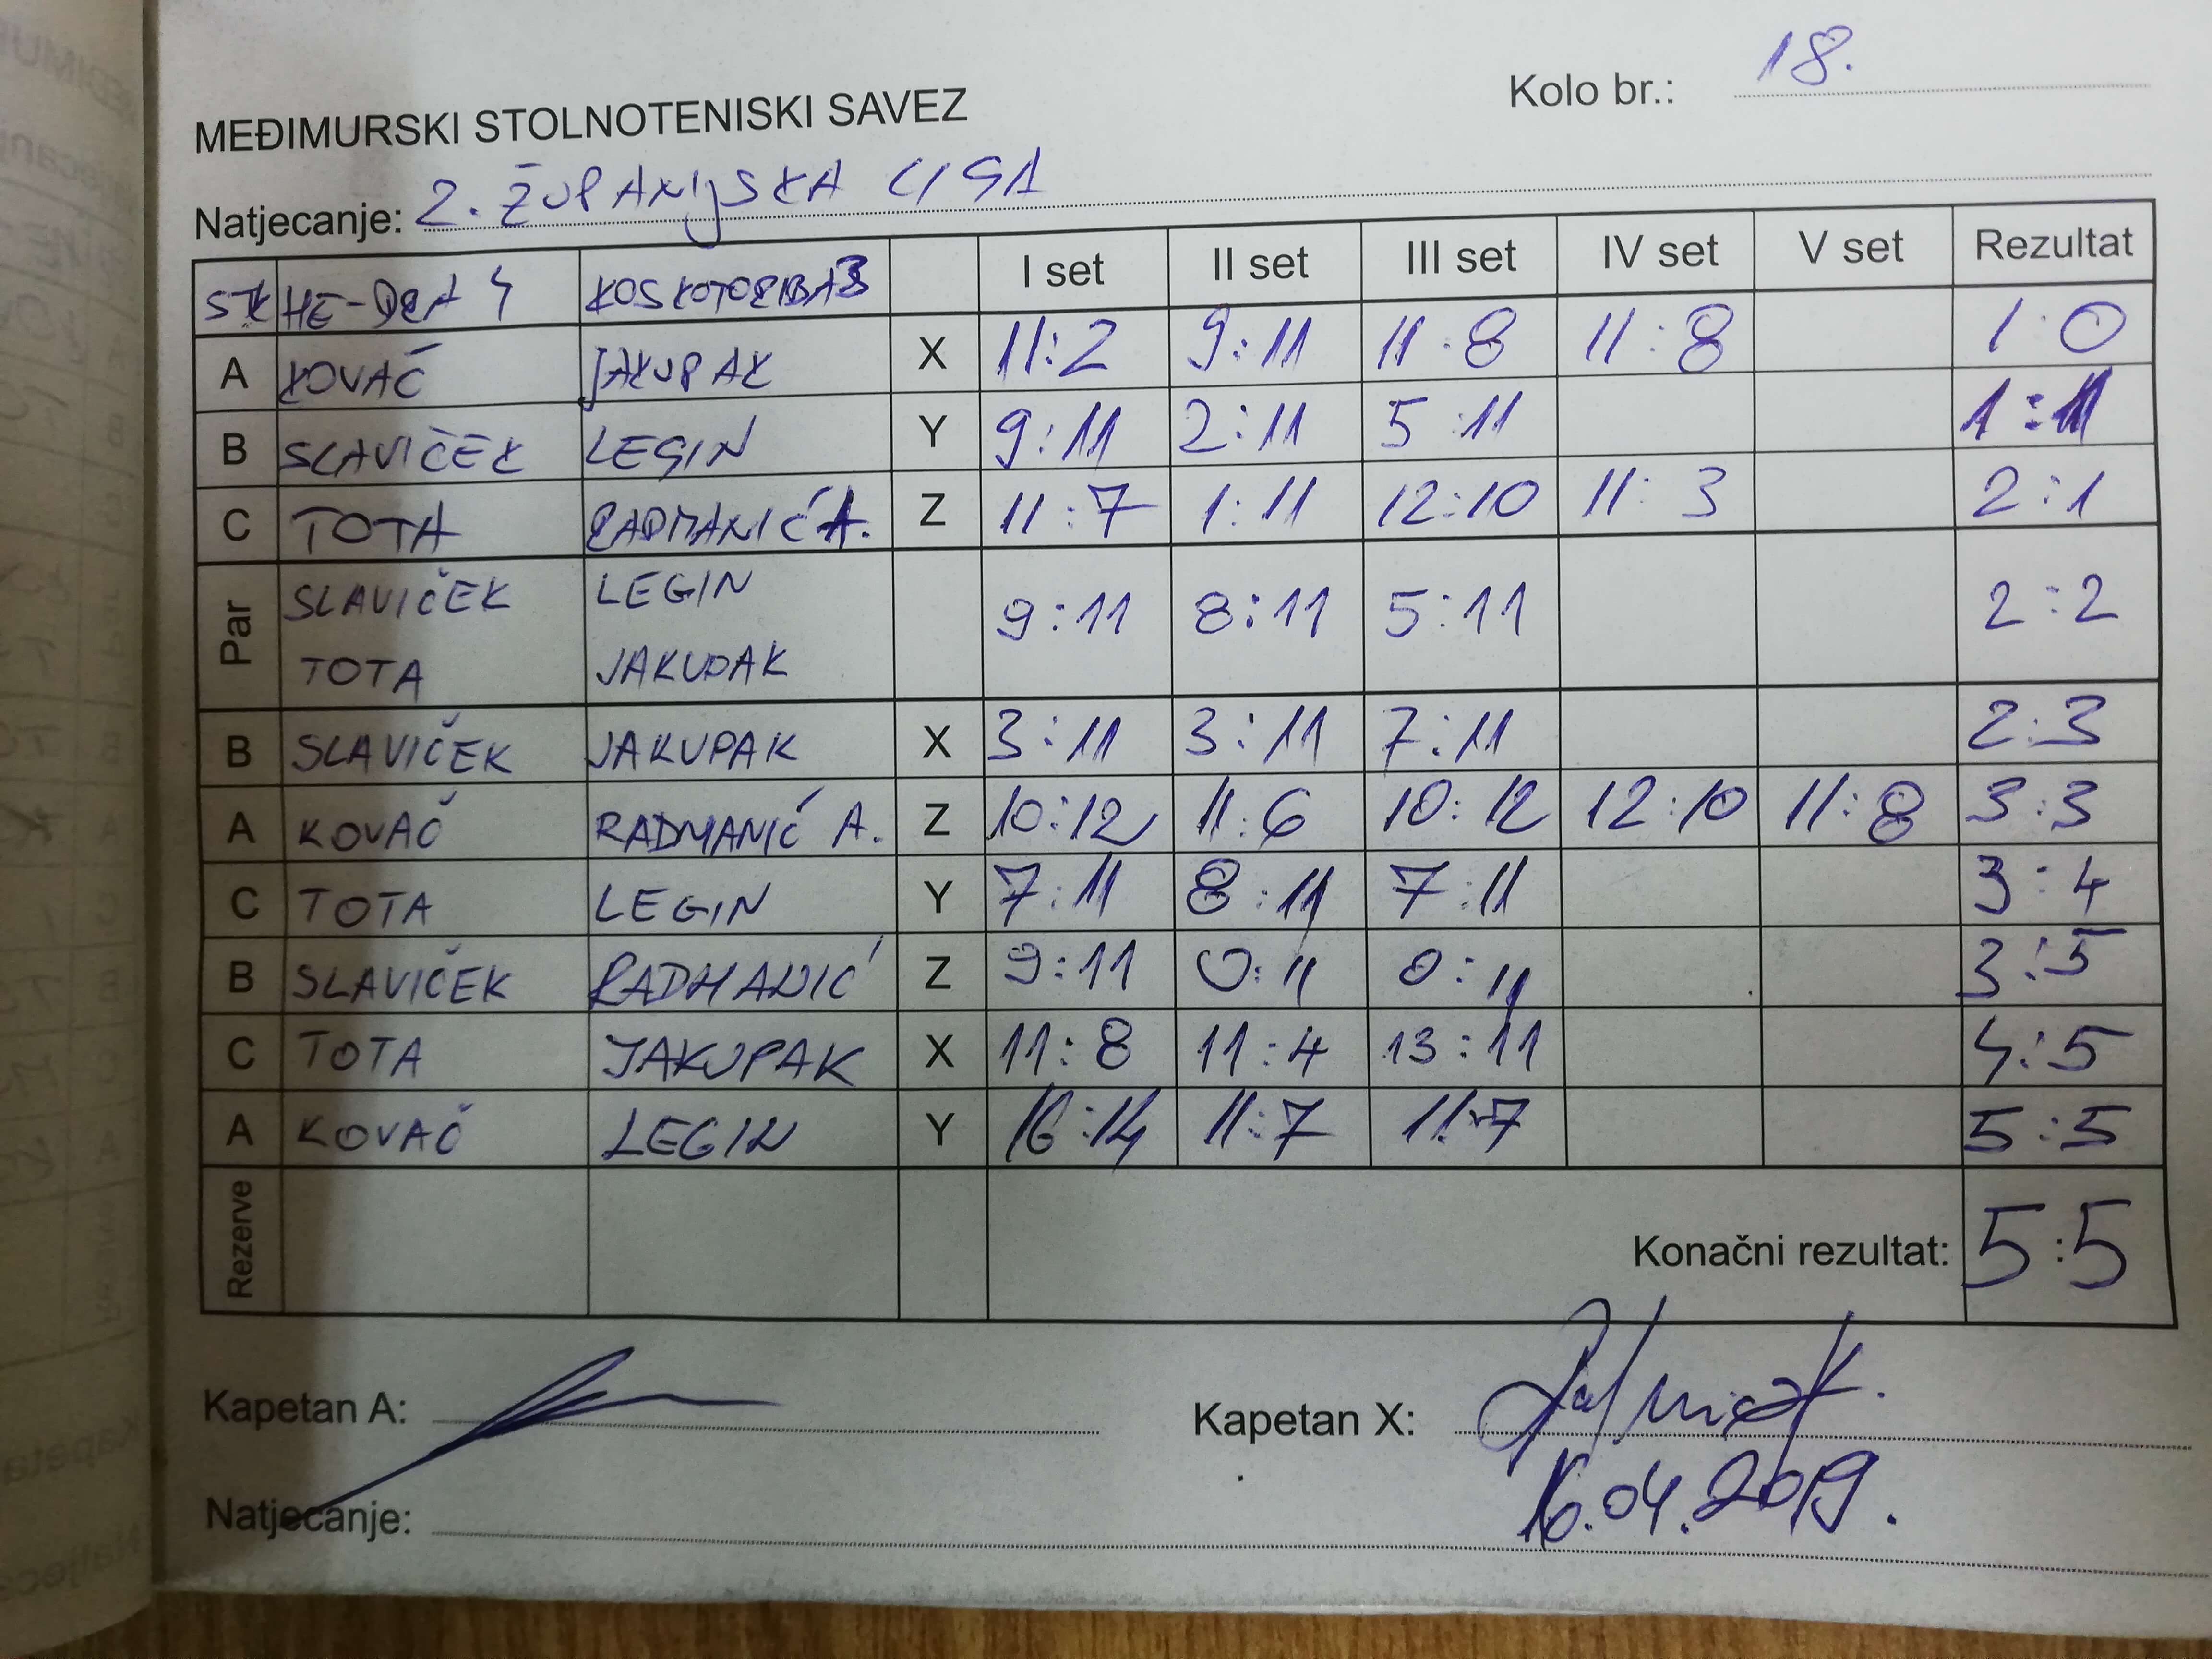 Kolo br.: 18.
MEĐIMURSKI STOLNOTENISKI SAVEZ
Natjecanje: 2. ŽUPANIJSKA LIGA
STK HE-DRA 4 KOSKOTORIBA3 I set II set III set IV set V set Rezultat
A KOVAČ JAKUPAK X 11:2 9:11 11:8 11:8 1:0
B SLAVIČEK LEGIN Y 9:11 2:11 5:11 1:1
C TOTA RADMANIĆ A. Z 11:7 1:11 12:10 11:3 2:1
Par SLAVIČEK LEGIN 9:11 8:11 5:11 2:2
TOTA JAKUPAK
B SLAVIČEK JAKUPAK X 3:11 3:11 7:11 2:3
A KOVAČ RADMANIĆ A. Z 10:12 11:6 10:12 12:10 11:8 3:3
C TOTA LEGIN Y 7:11 8:11 7:11 3:4
B SLAVIČEK RADMANIĆ Z 9:11 0:11 0:11 3:5
C TOTA JAKUPAK X 11:8 11:4 13:11 4:5
A KOVAČ LEGIN Y 16:14 11:7 11:7 5:5
Rezerve Konačni rezultat: 5:5
Kapetan A: Kapetan X:
16.04.2019.
Natjecanje: